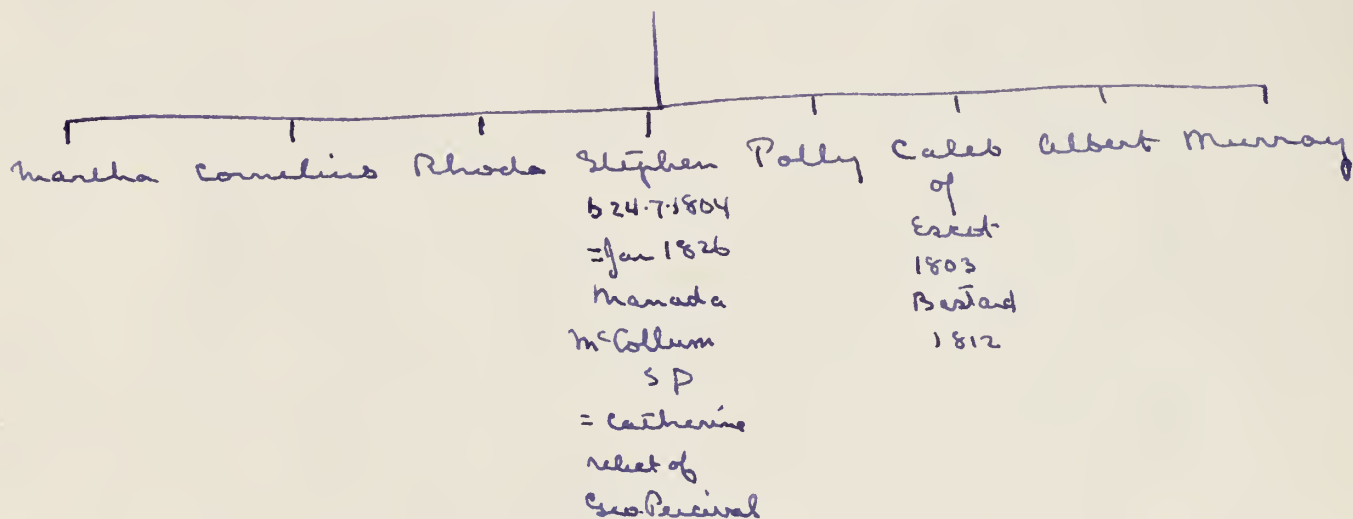 Martha Cornelius Rhoda Stephen Polly Caleb Albert Murray
b 24.7.1804
= Jan 1826
Manada
McCollum
S P
= Catherine
relict of
Geo. Percival
of
Escot
1803
Bastard
1812